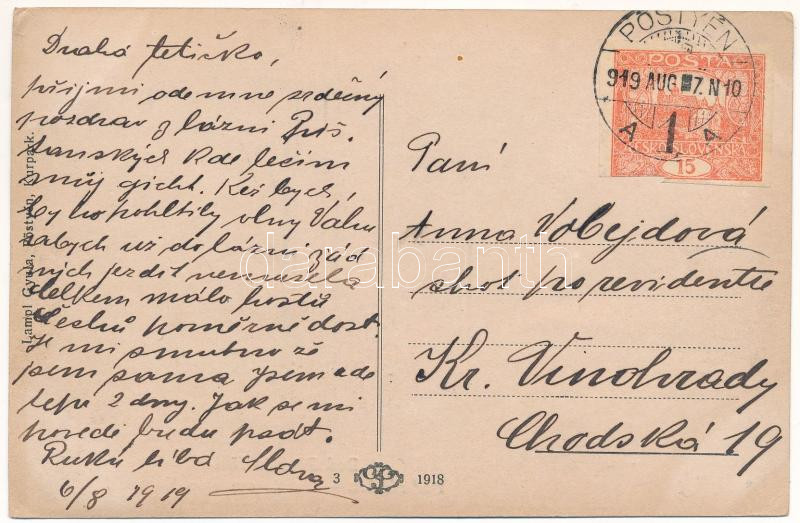 Drahá tetičko,
přijmi ode mne srdečný
pozdrav z lázní Piš-
ťanských kde léčím
můj gicht. Kéž bych
bychom
vlny Váhu
abych už do lázní žád
ných jezdit nemusela
Celkem málo hostů
Čechů poměrně dost.
Je mi smutno že
jsem sama jsem zde
teprv 2 dny. Jak se mi
povede budu psát.
Ruku líbá
6/8 1919
Lampl Gyula, Pöstyén, Kurpark.
3
1918
PÖSTYÉN
919 AUG 7. N10
A
1
POŠTA
ČESKO-SLOVENSKÁ
15
Paní
Anna Volejdová
choť p. o revidenta
Kr. Vinohrady
Chodská 19
darabanth